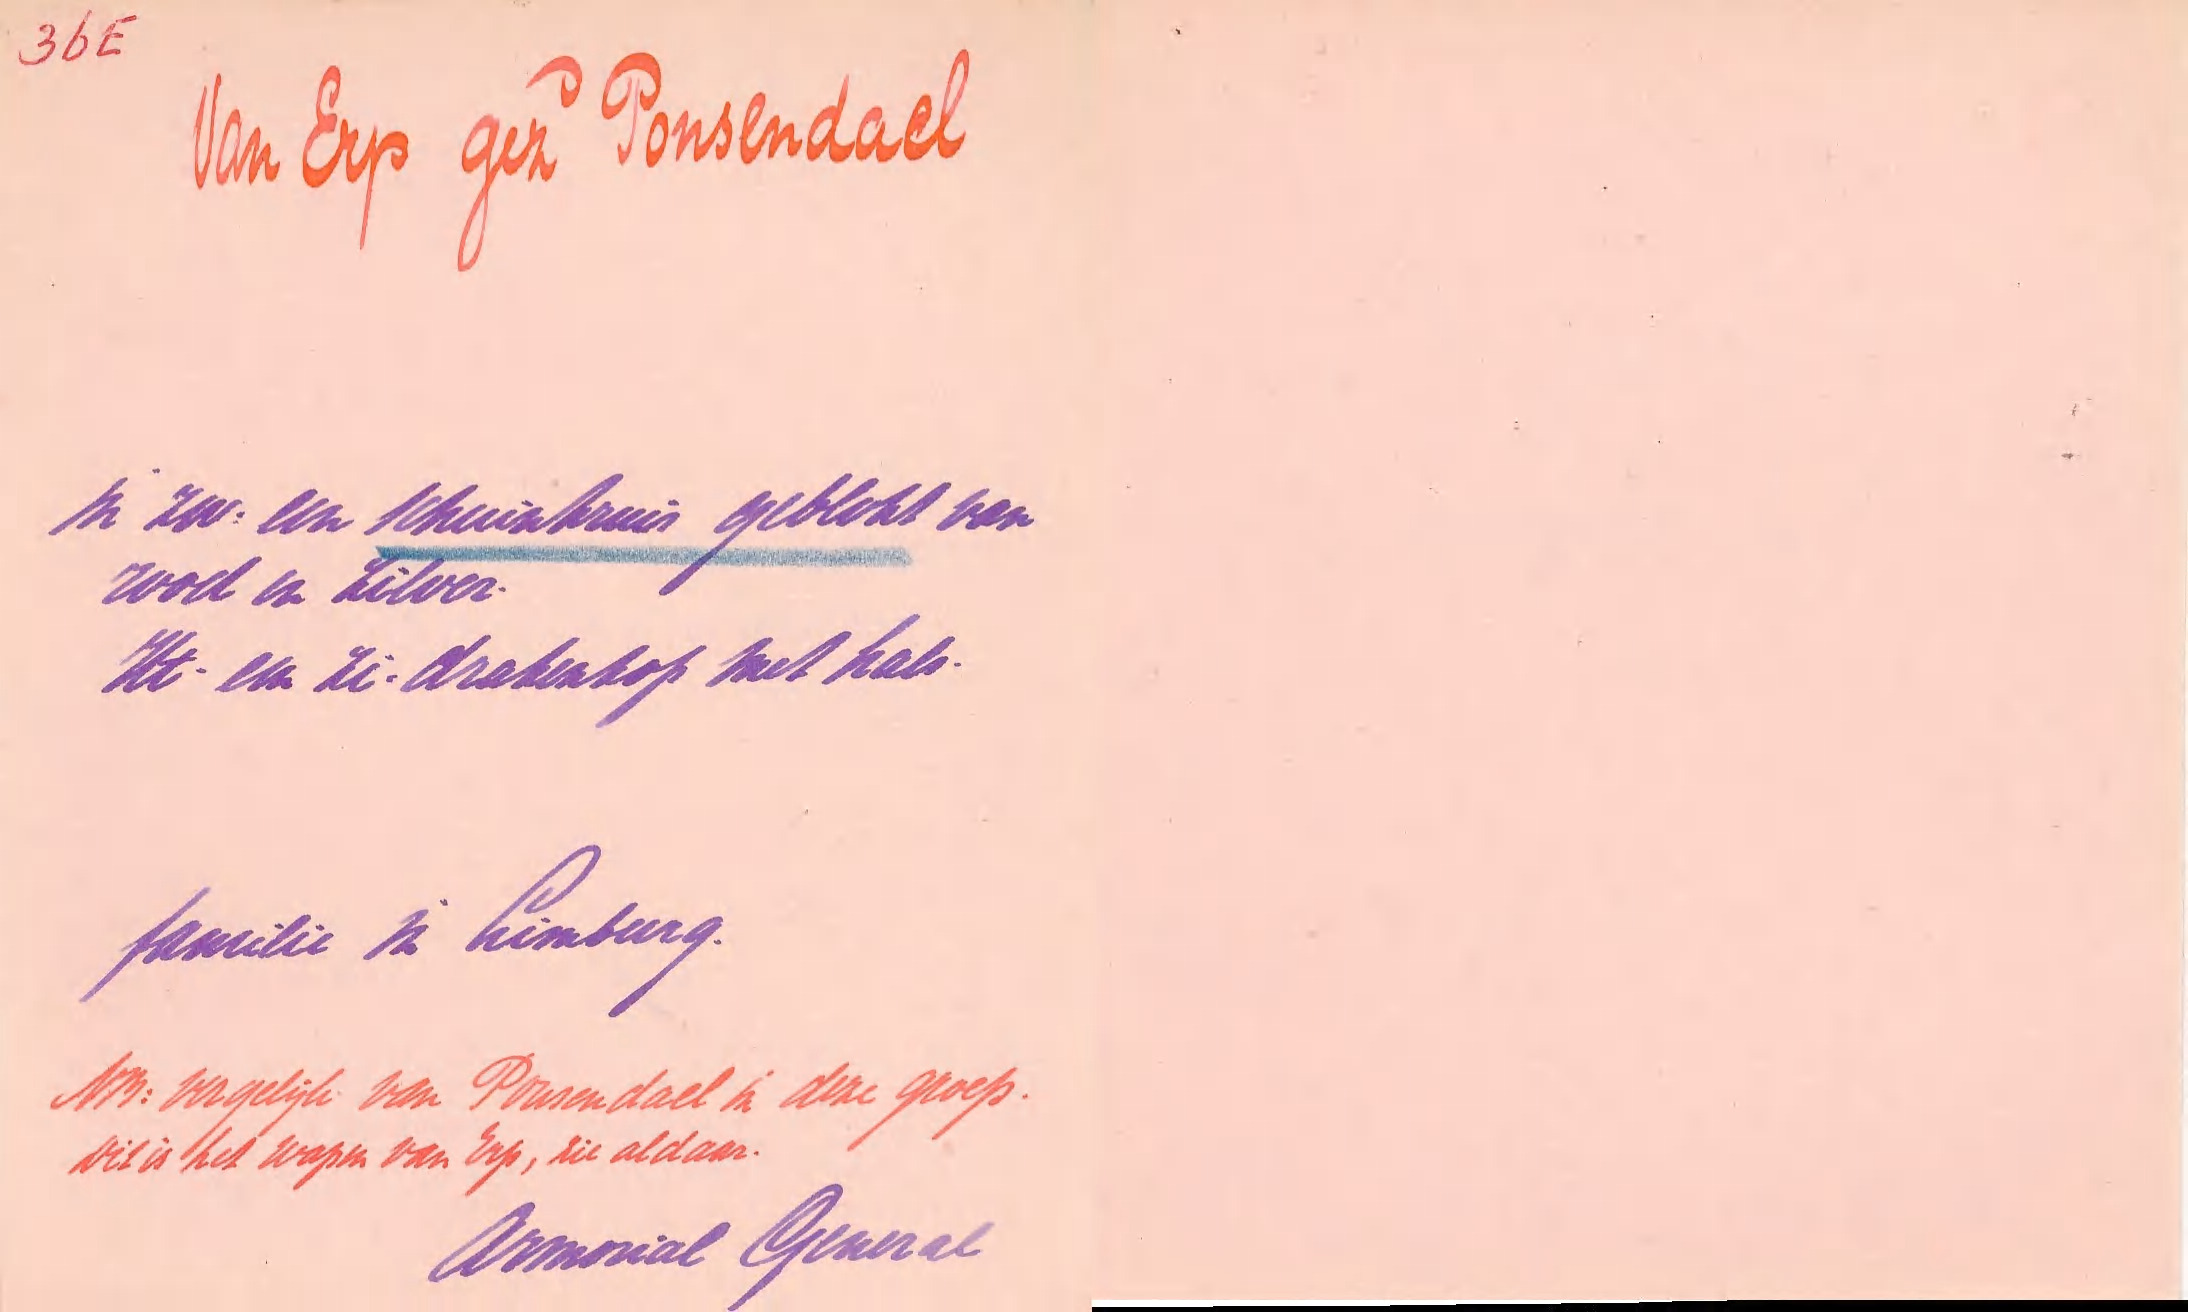 36E
Van Erp gezd Ponsendael
in zw. een schuinkruis geblokt van
rood en zilver.
Ht. een zi. drakenkop met hals.
familie in Limburg.
NB: vergelijk van Ponsendael in deze groep.
dit is het wapen van Erp, zie aldaar.
Armorial General